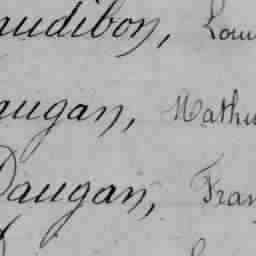 audibon, Lou
augan, Mathu
Daugan, Fran